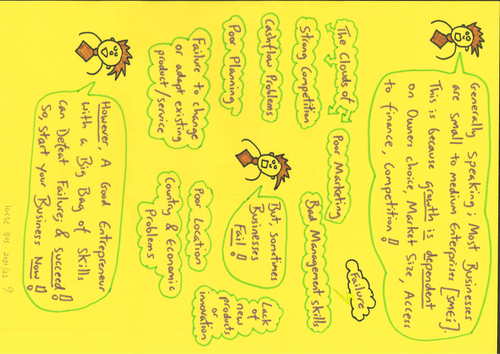 Generally Speaking; Most Businesses
are small to medium Enterprises [SME's].
This is because growth is dependent
on Owners choice, Market Size, Access
to finance, Competition!
The Clouds of
Failure
Strong Competition
Poor Marketing
Bad Management skills
Cashflow Problems
Poor Planning
But sometimes
Businesses
Fail!
Failure to change
or adapt existing
product/service
Poor Location
Country & Economic
Problems
Lack
of
new
products
or
innovation
However, A Good Entrepreneur
with a Big Bag of Skills
can Defeat Failure, & succeed!
So, start your Business Now!